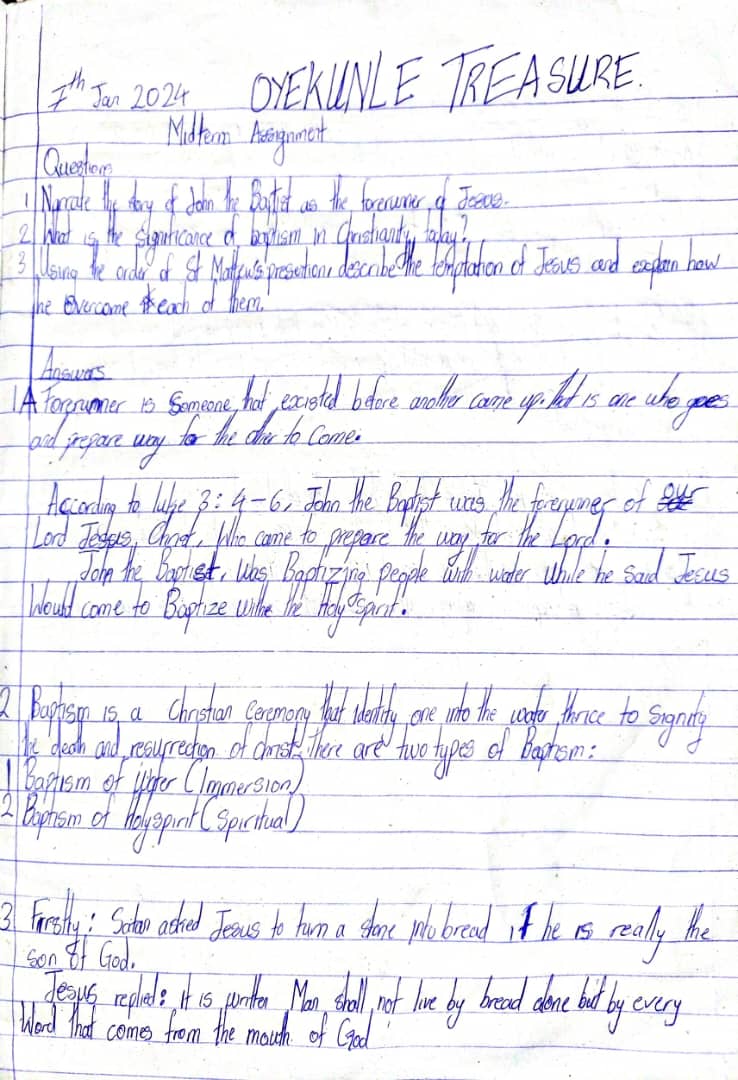 7th Jan 2024 OYEKUNLE TREASURE.
Midterm Assignment
Questions
1 Narrate the story of John the Baptist as the forerunner of Jesus.
2 What is the significance of baptism in Christianity today?
3 Using the order of St Mattew's presention, describe the temptation of Jesus and explain how
he overcome each of them.
Answers
1 A forerunner is someone that excisted before another came up. That is one who goes
and prepare way for the other to come.
According to luke 3:4-6, John the Baptist was the forerunner of our
Lord Jesus Christ, Who came to prepare the way for the Lord.
John the Baptist, was Baptizing people with water while he said Jesus
Would come to Baptize withe the Holy spirit.
2 Baptism is a Christian Ceremony that identify one into the water thrice to signify
the death and resurrection of christ, there are two types of Baptism:
1 Baptism of Water (Immersion)
2 Baptism of Holyspirit (Spiritual)
3 Firstly: Satan asked Jesus to turn a stone into bread if he is really the
son of God.
Jesus replied: it is written Man shall not live by bread alone but by every
Word that comes from the mouth of God